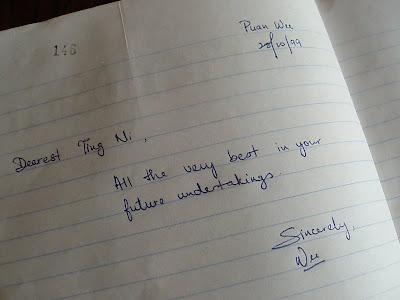 146
Puan Wee
20/10/99
Dearest Ting Ni,
All the very best in your
future undertakings.
Sincerely,
Wee